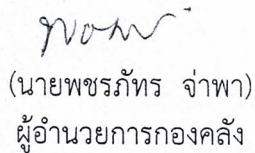 (นายพชรภัทร จ่าพา)
ผู้อำนวยการกองคลัง